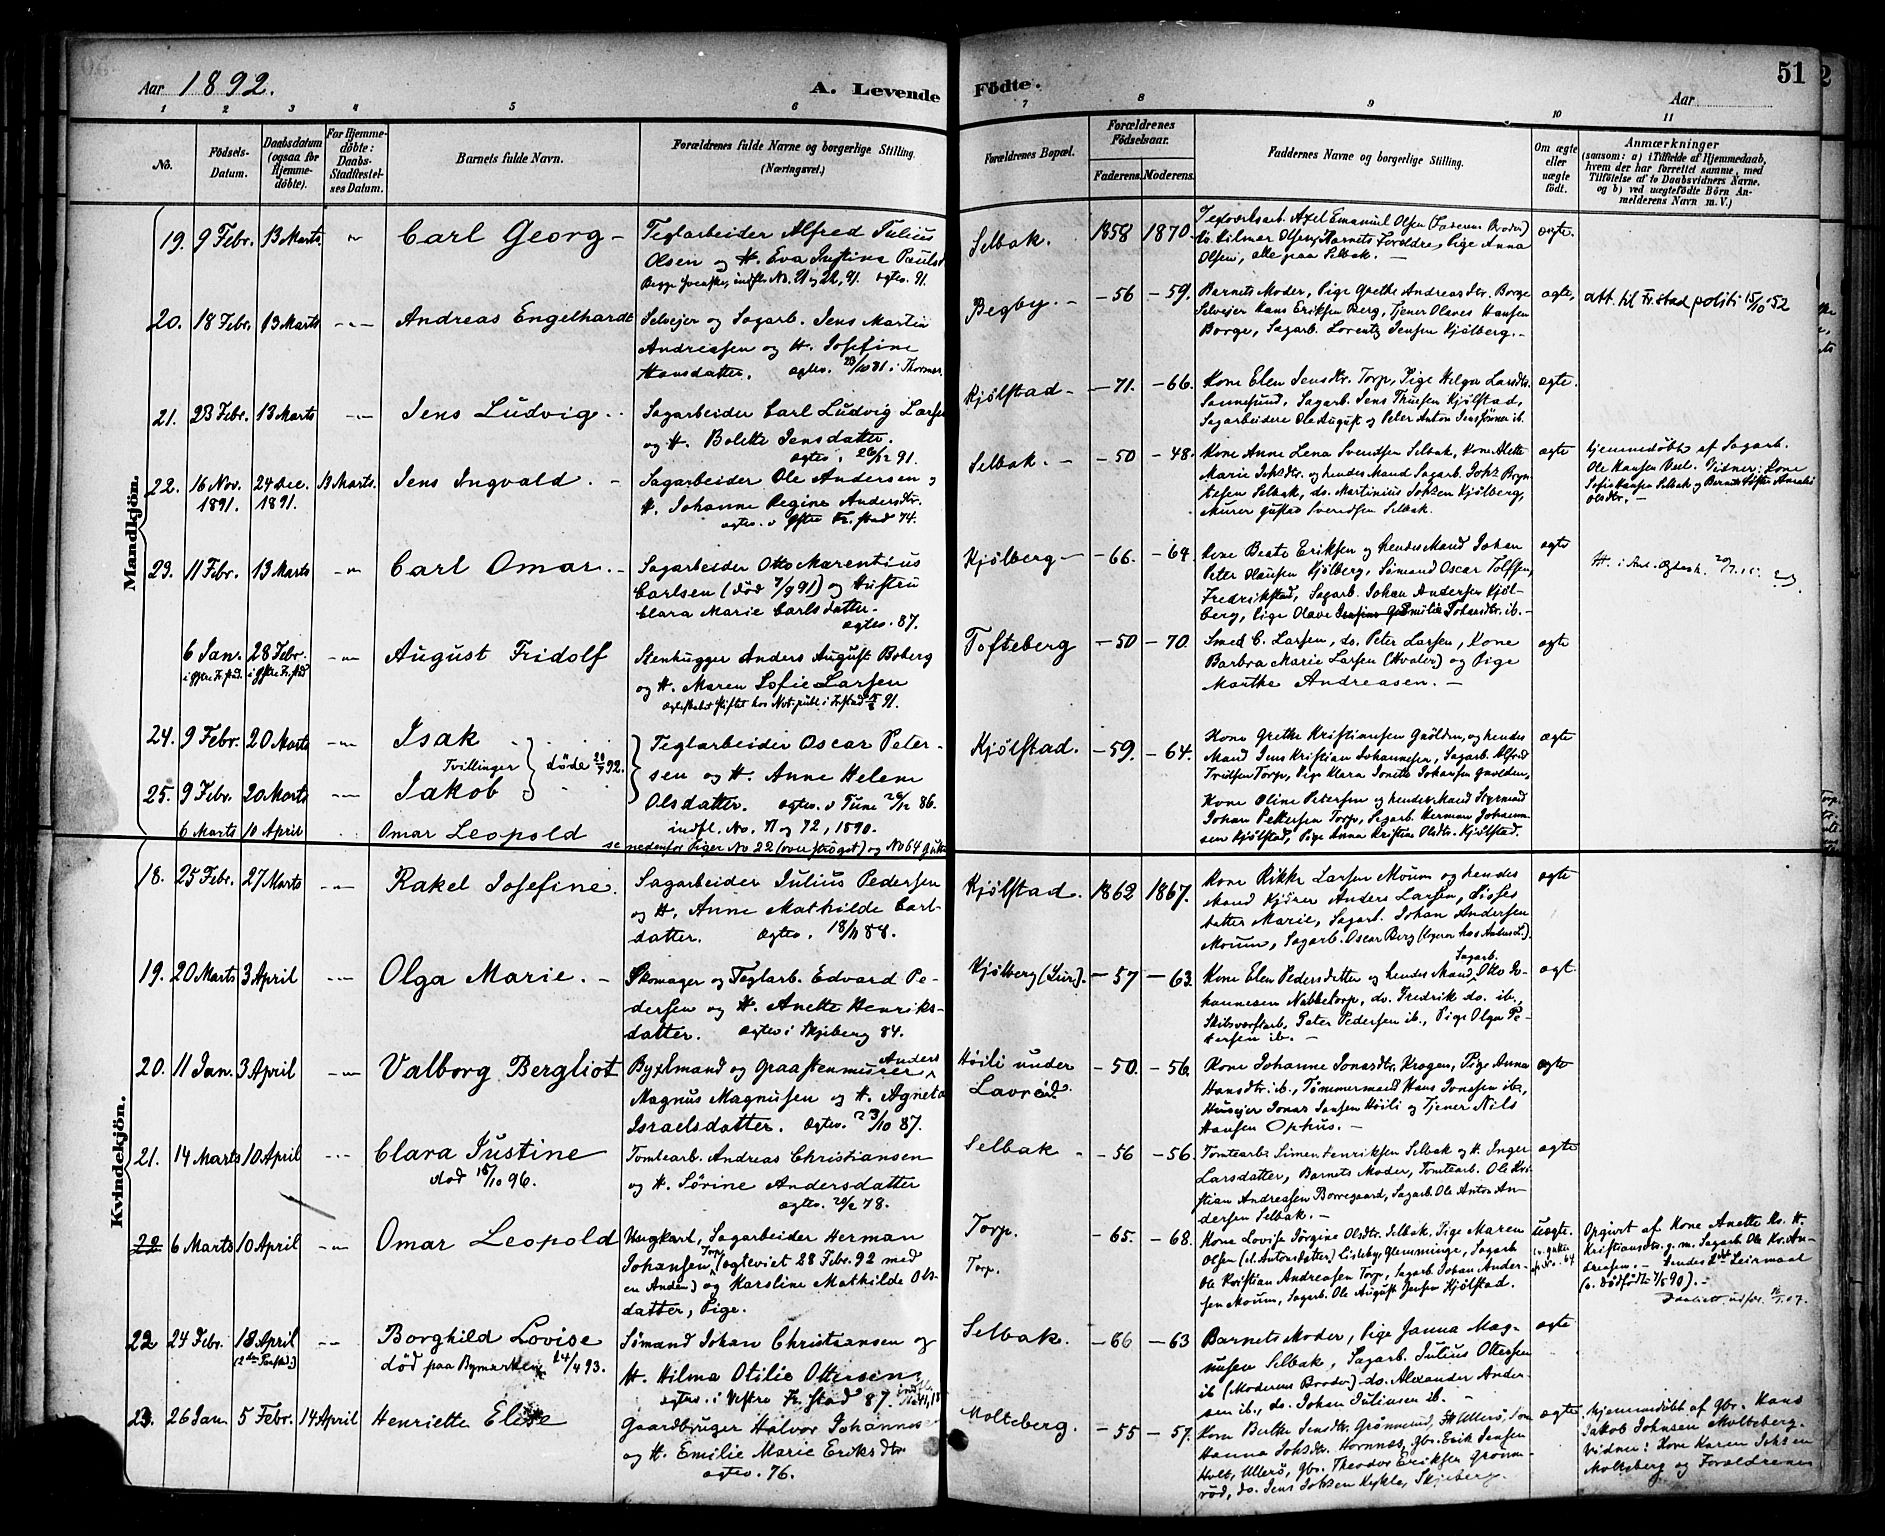 51
Aar 1892.
A. Levende Födte.
Aar
1 2 3 4 5 6 7 8 9 10 11
No.
Födsels-Datum.
Daabsdatum (ogsaa for Hjemme-döbte).
For Hjemme-döbte: Daabs-Stadfæstel-ses Datum.
Barnets fulde Navn.
Forældrenes fulde Navne og borgerlige Stilling. (Næringsvei.)
Forældrenes Bopæl.
Forældrenes Födselsaar.
Faderens. Moderens.
Faddernes Navne og borgerlige Stilling.
Om ægte eller uægte födt.
Anmærkninger
(saasom: a) i Tilfælde af Hjemmedaab,
hvem der har forrettet samme, med
Tilföielse af to Daabsvidners Navne,
og b) ved uægtefödte Börn An-
melderens Navn m. V.)
Mandkjön.
19. 9 Febr. 13 Marts Carl Georg
Teglarbeider Alfred Julius
Olsen og H. Eva Justine Pauls
Begge Svenske, indfl. No. 21 og 22, 91. ægtev. 91.
Selbak. 1858 1870.
Teglværksarb. Axel Emanuel Olsen (Faderens Broder)
Hilmar Olsen, Barnets Forældre, Pige Anna
Olsen, alle paa Selbak.
ægte.
20. 18 Febr. 13 Marts Andreas Engelhardt
Selveier og Sagarb. Jens Martin
Andreassen og H. Josefine
Hansdatter. ægtev. 23/10 81 i
Begby. - 56 - 59.
Barnets Moder, Pige Grethe Andreasdtr. Borge
Selveier Hans Eriksen Berg, Tjener Olaves Hansen
Borge, Sagarb. Lorentz Jensen Kjølberg.
ægte,
att. til Fr.stad politi 15/10 52
21. 23 Febr. 13 Marts Jens Ludvig
Sagarbeider Carl Ludvig Larsen
og H. Bolette Jensdatter.
ægtev. 26/12 91.
Kjølstad - 71. - 66.
Kone Elen Jensdtr. Torp, Pige Helga Larsdtr.
Sannesund, Sagarb. Jens Thuesen Kjølstad,
Sagarbeidere Ole August og Peter Anton Jenssønner ib.
ægte.
22. 16 Nov. 1891. 24 Dec. 1891. 13 Marts. Jens Ingvald
Sagarbeider Ole Andersen og
H. Johanne Regine Andersdtr.
ægtev. i Østre Fr.stad 74.
Selbak. - 50 - 48.
Kone Anne Lena Svendsen Selbak, Kone Mette
Marie Johsdtr. og hendes Mand Sagarb. Johs Bryn-
tesen Selbak, do. Martinius Johsen Kjølberg,
Murer Gustav Svendsen Selbak.
ægte
Hjemmedøbt af Sagarb.
Ole Hansen Vidner: Kone
Sofie Hansen Selbak og Barnets Søster Amalie
Olsdtr.
23. 11 Febr. 13 Marts Carl Omar.
Sagarbeider Otto Marentius
Carlsen (død 7/9 91) og Hustru
Clara Marie Carlsdatter.
ægtev. 87.
Kjølberg - 66. - 64.
Kone Beate Eriksen og hendes Mand Johan
Peter Olausen Kjølberg, Sømand Oscar Tolfsen,
Fredrikstad, Sagarb. Johan Andersen Kjøl-
berg, Pige Olave Emilie Johansdtr. ib.
ægte
6 Jan. i Østre Fr.stad. 28 Febr. i Østre Fr.stad August Fridolf
Stenhugger Anders August Boberg
og H. Maren Sofie Larsen
Ægteskabet stiftet hos Not. publ. i Frstad 91.
Tofteberg - 50 - 70.
Smed C. Larsen, do. Peter Larsen, Kone
Barbra Marie Larsen (Hvaler) og Pige
Marthe Andreasen.
ægte
24. 9 Febr. 20 Marts Isak
Tvillinger døde 92.
25. 9 Febr. 20 Marts Jakob
Teglarbeider Oscar Peter-
sen og H. Anne Helene
Olsdatter. ægtev. i Tune 26/12 86.
indfl. No. 71 og 72, 1890.
Kjølstad. - 59. - 64.
Kone Grethe Kristiansen og hendes
Mand Jens Kristian Johannesen, Sagarb. Alfred
Torp, Pige Klara Johansen
Kone Oline Petersen og hendes Mand Styrmand
Johan Pettersen Torp, Sagarb. Herman Johann-
sen Kjølstad, Pige Anna Kristine Olsdtr. Kjølstad.
ægte
6 Marts 10 April Omar Leopold
se nedenfor Piger No 22 (overstrøget) og No 64 Gutter
Kvindekjön.
18. 25 Febr. 27 Marts Rakel Josefine.
Sagarbeider Julius Pedersen
og H. Anne Mathilde Carl-
datter. ægtev. 18/11 88.
Kjølstad. 1862 1867.
Kone Rikke Larsen Moum og hendes
Mand Kjører Anders Larsen,
datter Marie, Sagarb. Johan Andersen
Moum, Sagarb. Oscar Berg
ægte
19. 20 Marts 3 April Olga Marie.
Skomager og Teglarb. Edvard Pe-
dersen og H. Anette Henriks-
datter. ægtev. i Skjeberg 84.
Kjølberg (Leir.). - 57 - 63.
Kone Elen Pedersdatter og hendes Mand Sagarb. Otto Jo-
hannesen Nabbetorp, do. Fredrik do. ib.,
Skibsværftarb. Peter Pedersen ib., Pige Olga Pe-
tersen ib.
ægt.
20. 11 Jan. 3 April Valborg Bergliot
Byxlmand og Graastenmurer Anders
Magnus Magnusen og H. Agneta
Israelsdatter. ægtev. 23/10 87.
Høili under
Lavrød. - 50. - 56.
Kone Johanne Jonasdtr. Krogen, Pige Anna
Hansdtr. ib., Tømmermand Hans Jonassen ib.,
Huseier Jonas Jansen Høili og Tjener Nils
Hansen Ophus.
ægte
21. 14 Marts 10 April Clara Justine
død 15/10 96.
Tomtearb. Andreas Christiansen
og H. Sørine Andersdatter
ægtev. 26/12 78.
Selbak - 56 - 56.
Tomtearb. Simen Henriksen Selbak og H. Inger
Larsdatter, Barnets Moder, Tomtearb. Ole Kri-
stian Andreasen Borregaard, Sagarb. Ole Anton An-
dersen Selbak.
ægte
22 6 Marts 10 April Omar Leopold
Ungkarl, Sagarbeider Herman
Johansen Torp (ægteviet 28 Febr. 92 med
en Anden) og Karoline Mathilde Ols-
datter, Pige.
Torp.
Torp. - 65. - 68.
Kone Lovise Jørgine Olsdtr. Selbak, Pige Maren
Olsen Lisleby Glemminge, Sagarb.
Ole Kristian Andreasen Torp, Sagarb. Johan Ander-
sen Moum, Sagarb. Ole August Jensen Kjølstad.
uægte.
Opgivet af Kone Anette
Kristiansdtr. g. m. Sagarb. Ole Kr. An-
dreasen. Hendes 2det Leiermaal
(1. Dødfødt 7/5 90).
22 24 Febr. 18 April (2den Paaskd.) Borghild Lovise
død paa Bymarken 24/4 93.
Sømand Johan Christiansen og
H. Hilma Otilie Ottersen,
ægtev. i Vestre Fr.stad 87.
Selbak. - 66 - 63
Barnets Moder, Pige Janna Mag-
nusen Selbak, Sagarb. Julius Ottersen
ib (Moderens Broder) do. Alexander Ander-
sen ib., do. Johan Juliusen ib.
ægte
23. 26 Jan. 5 Febr. 14 April Henriette Elise
Gaardbruger Halvor Johannese
og H. Emilie Marie Eriksdtr
ægtev. 76.
Molteberg. - 55 - 57.
Kone Berthe Jensdtr. Grønnerød, Ullerø, Kone
Hanna Johsdtr. Hornnæs, Gbr. Erik Jensen
Holt, Ullerø, Gbr. Theodor Eriksen Grønne-
rød, do. Jens Johsen Kykle, Skjeberg.
ægte.
Hjemmedøbt af Gbr. Hans
Jakob Johnsen Molteberg.
Vidner: Kone Karen Johsen
Molteberg og Forældrene